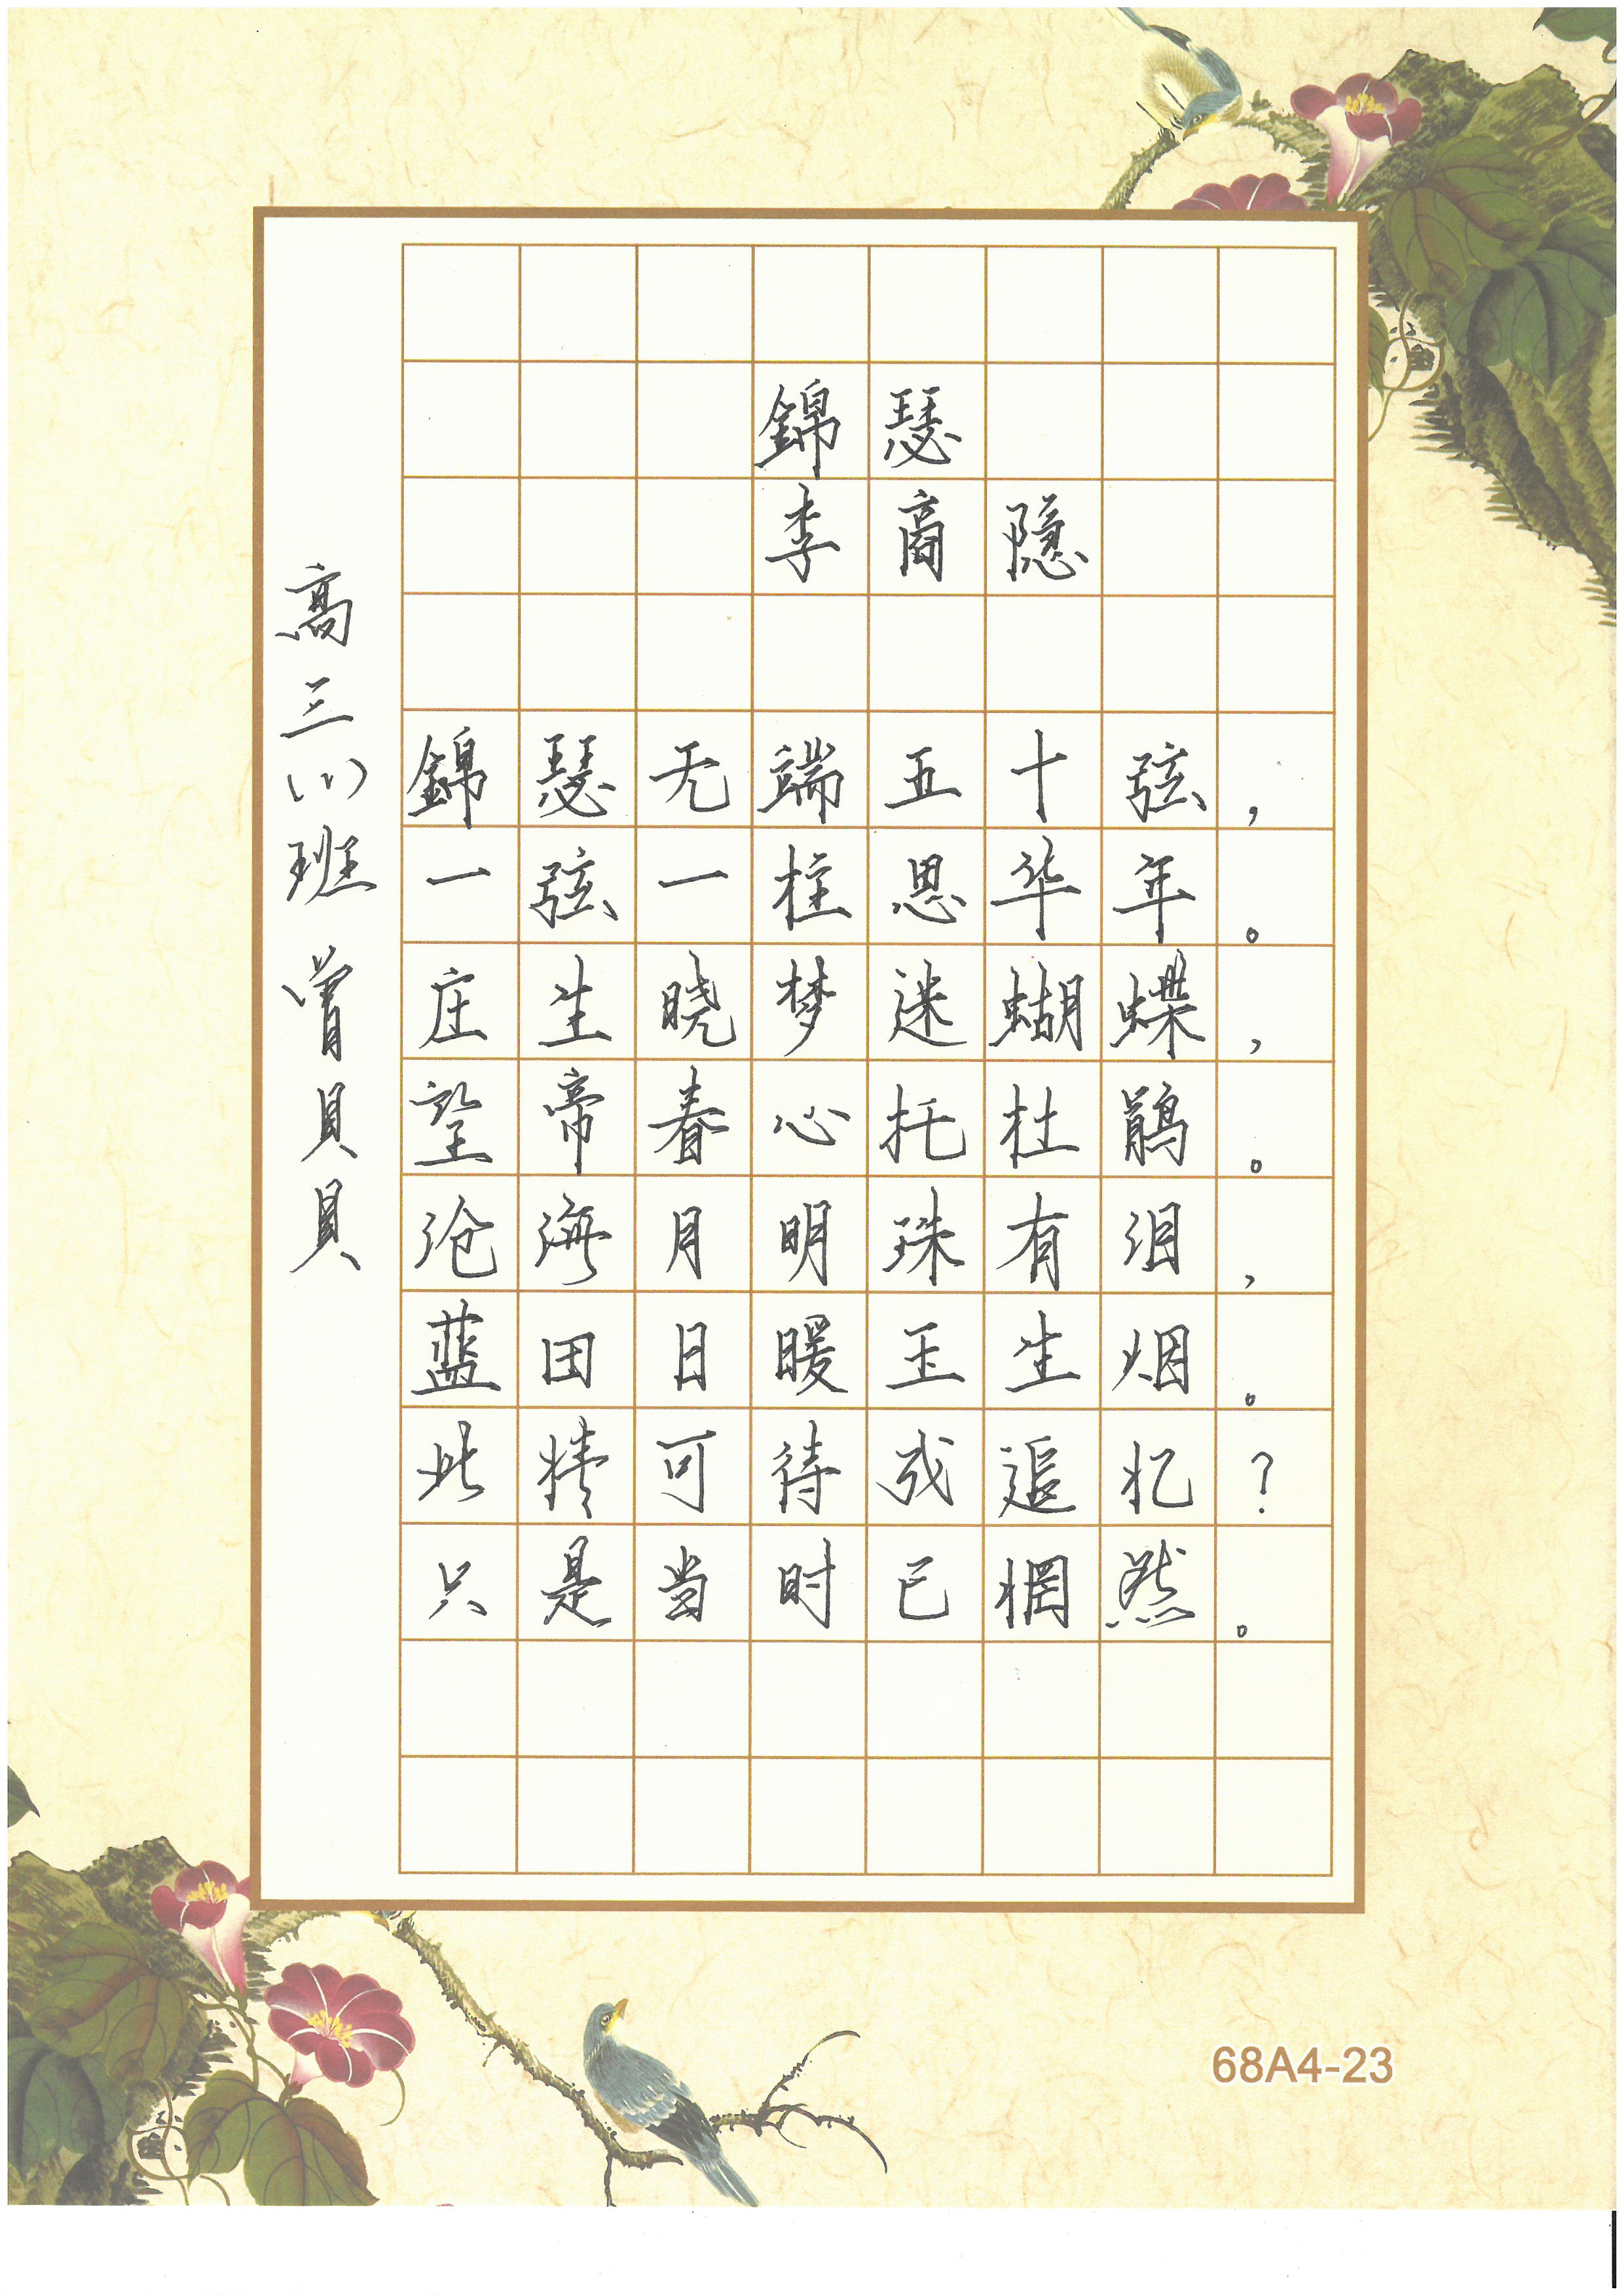 錦瑟
李商隐
錦瑟无端五十弦，
一弦一柱思华年。
庄生晓梦迷蝴蝶，
望帝春心托杜鹃。
沧海月明珠有泪，
蓝田日暖玉生烟。
此情可待成追忆？
只是当时已惘然。
高三(1)班 曾貝貝
68A4-23